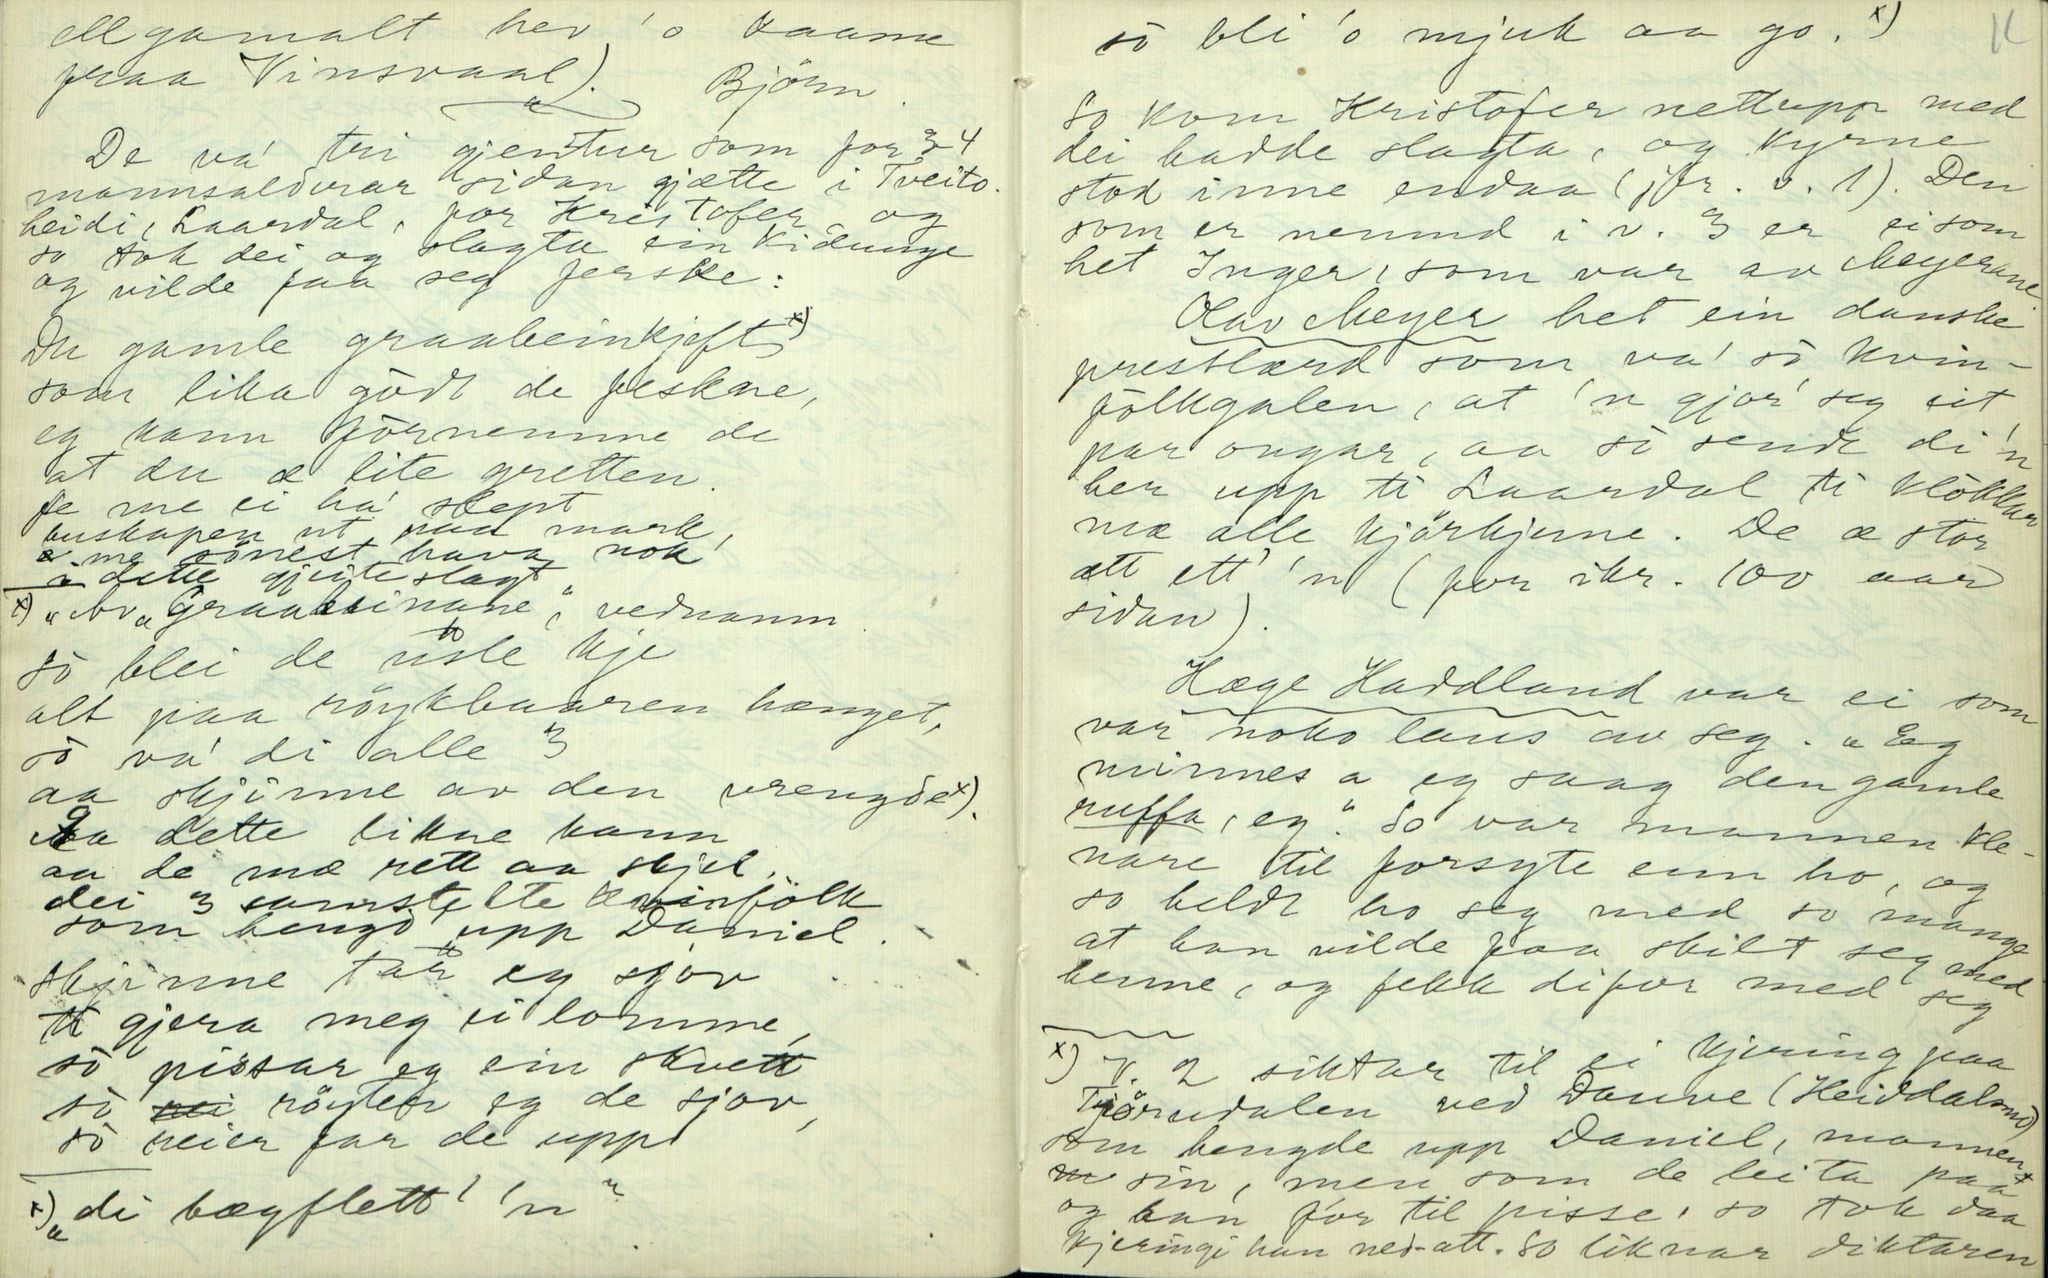 ell gamalt hev 'o kaame
fraa Vinsvaal). Bjönn.
De va' tri gjentur som for 3-4
mannsaldrar sidan gjætte i Tveito-
heidi, Laardal, for Kristofer, og
so tok dei og slagta ein kidunge
og vilde faa seg ferske:
Du gamle graabeinkjeft x)
som lika gödt de feskne,
eg kann förnemme de
at du æ lite gretten.
Fe me ei ha' slept
buskapen ut paa mark,
me sönest hava nok
i dette gjeiteslagt
x) "Av "Graabeinane", vednamn
Sö blei de usle kje
alt paa röykbaaren hænget,
sö va' di alle 3
aa skjinne av den vrengde x).
Aa dette likne kann
aa de mæ rett aa skjel,
dei 3 samstelte kvinfölk
som hengd' upp Daniel.
Skjinne tar eg sjov
ti gjera meg ei lomme,
sö pissar eg ein skvett
sö röyter eg de sjov,
sö reier far de upp
x) "di bægflett' 'n"
sö bli 'o mjuk aa go. x)
So kom Kristofer nettupp med
dei hadde slagta, og kyrne
stod inne endaa (jfr. v. 1). Den
som er nemnd i v. 3 er ei som
het Inger, som var av Meyerane
Olav Meyer het ein danske
prestlærd som va' sö kvin-
fölkgalen, at 'n gjor' seg eit
par ongar, aa sö sende di 'n
her upp ti Laardal ti klökkar
mæ alle kjörkjune. De æ stor
ætt ett' 'n (for ikr. 100 aar
sidan).
Hæge Haddland var ei som
var noko laus av seg. "Eg
minnes a eg saag den gamle
ruffa, eg". So var mannen kle-
nare til forsyte enn ho, og
so heldt ho seg med so mange
at han vilde faa skilt seg med
henne, og fekk difor med seg
x) V. 2 siktar til ei kjering paa
Tjörudalen ved Dauve (Heiddalsmo)
som hengde upp Daniel, mannen
sin, men som de leita paa
og han for til pisse, so tok daa
kjeringi han ned-att. So liknar diktaren